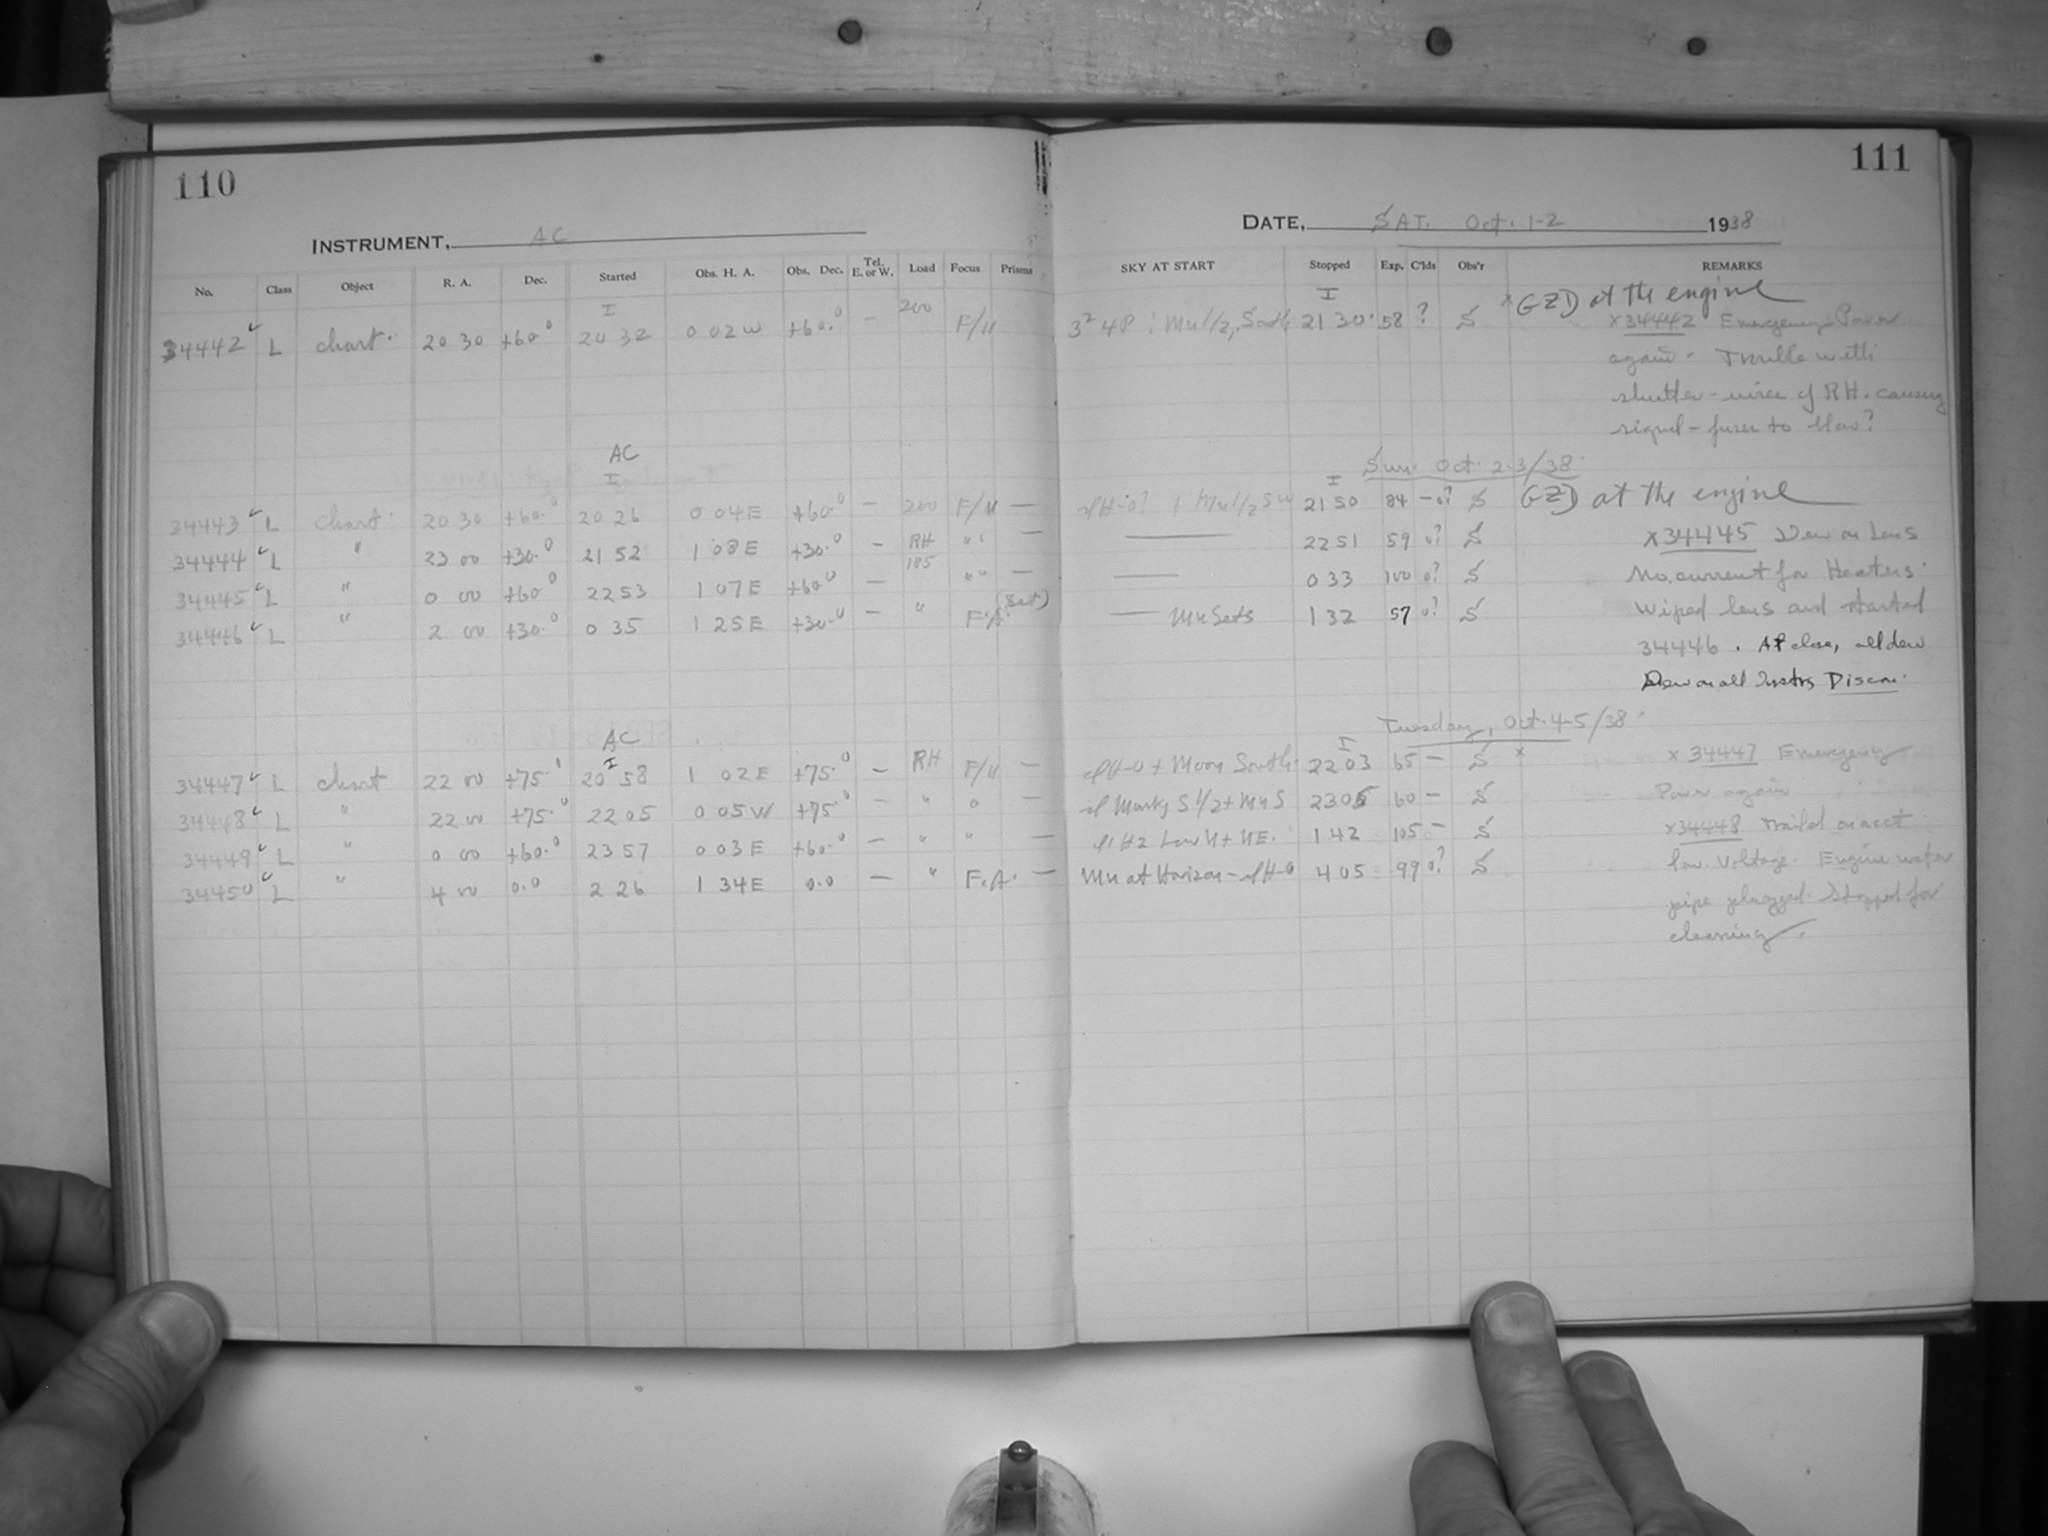 110
INSTRUMENT, AC
No. Class Object R. A. Dec. Started Obs. H. A. Obs. Dec. Tel. E. or W. Load Focus Prisms
I 200
34442 L chart 20 30 +60.0 20 32 0 02 W +60.0 — F/U
AC
I
34443 L chart 20 30 +60.0 20 26 0 04 E +60.0 — 200 F/U —
34444 L " 23 00 +30.0 21 52 1 08 E +30.0 — RH 185 " " —
34445 L " 0 00 +60.0 22 53 1 07 E +60.0 — " " —
34446 L " 2 00 +30.0 0 35 1 25 E +30.0 — " F.A. (Set)
AC
I
34447 L chart 22 00 +75.0 20 58 1 02 E +75.0 — RH F/U —
34448 L " 22 00 +75.0 22 05 0 05 W +75.0 — " " —
34449 L " 0 00 +60.0 23 57 0 03 E +60.0 — " " —
34450 L " 4 00 0.0 2 26 1 34 E 0.0 — " F.A. —
111
DATE, SAT. Oct. 1-2 1938
SKY AT START Stopped Exp. C'lds Obs'r REMARKS
I
x GZD at the engine
South 21 30 58 ? S x 34442 Emergency Power
again. Trouble with
shutter-wires of RH. causing
signal-fuses to blow?
Sun. Oct. 2-3/38
I
21 50 84 — 0? S GZD at the engine
—— 22 51 59 0? S x 34445 Dew on Lens
—— 0 33 100 0? S No. current for Heaters.
—— Mn Sets 1 32 57 0? S Wiped lens and started
34446. AP close, all dew
Dew on all Instrs Discon.
Tuesday, Oct. 4-5/38
I
+ Moon South 22 03 65 — S x x 34447 Emergency
Power again
S 1/2 + Mn S 23 05 60 — S
x 34448 Trail'd on acct
Low N + NE. 1 42 105 — S
low Voltage. Engine water
Mn at Horizon 4 05 99 0? S
pipe plugged. Stopped for
cleaning.